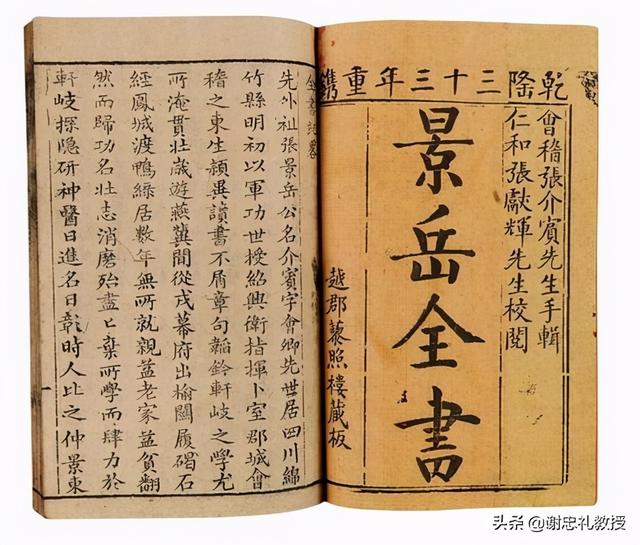 乾隆三十三年重鐫
會稽張介賓先生手輯
仁和張獻輝先生校閱
景岳全書
越郡藜照樓藏板
全書紀畧
先外祖張景岳公名介賓字會卿先世居四川綿
竹縣明初以軍功世授紹興衛指揮卜室郡城會
稽之東生頴異讀書不屑章句韜鈐軒岐之學尤
所淹貫壯歲遊燕冀間從戎幕府出榆關履碣石
經鳳城渡鴨綠居數年無所就親益老家益貧翻
然而歸功名壯志消磨殆盡匕棄所學而肆力於
軒岐探隱研神醫日進名日彰時人比之仲景東
一
头条 @谢忠礼教授